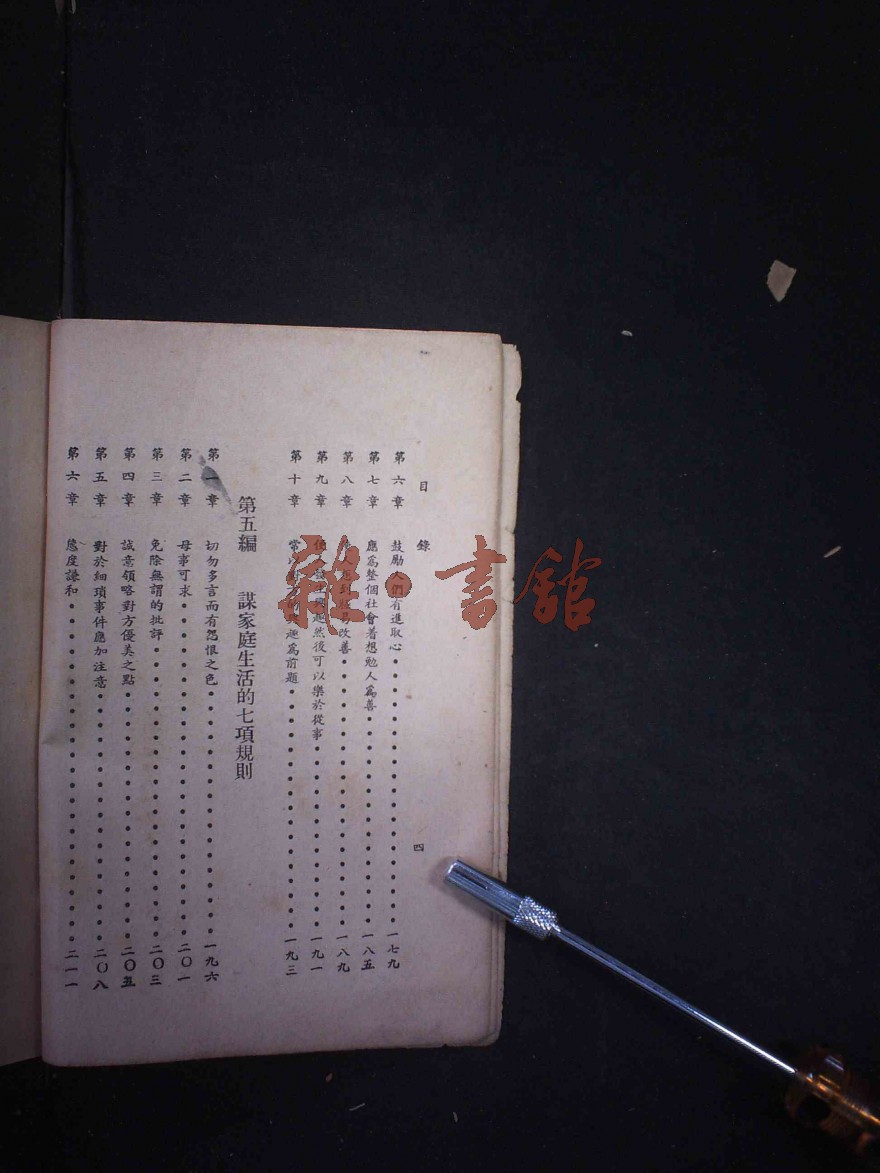 目錄 四
第六章 鼓勵人們有進取心 一七九
第七章 應為整個社會着想勉人為善 一八五
第八章 改善 一八九
第九章 然後可以樂於從事 一九一
第十章 為前題 一九三
第五編 謀家庭生活的七項規則
第一章 切勿多言而有怨恨之色 一九六
第二章 毋事可求 二〇一
第三章 免除無謂的批評 二〇三
第四章 誠意領略對方優美之點 二〇五
第五章 對於細瑣事件應加注意 二〇八
第六章 態度謙和 二一一
雜·書館